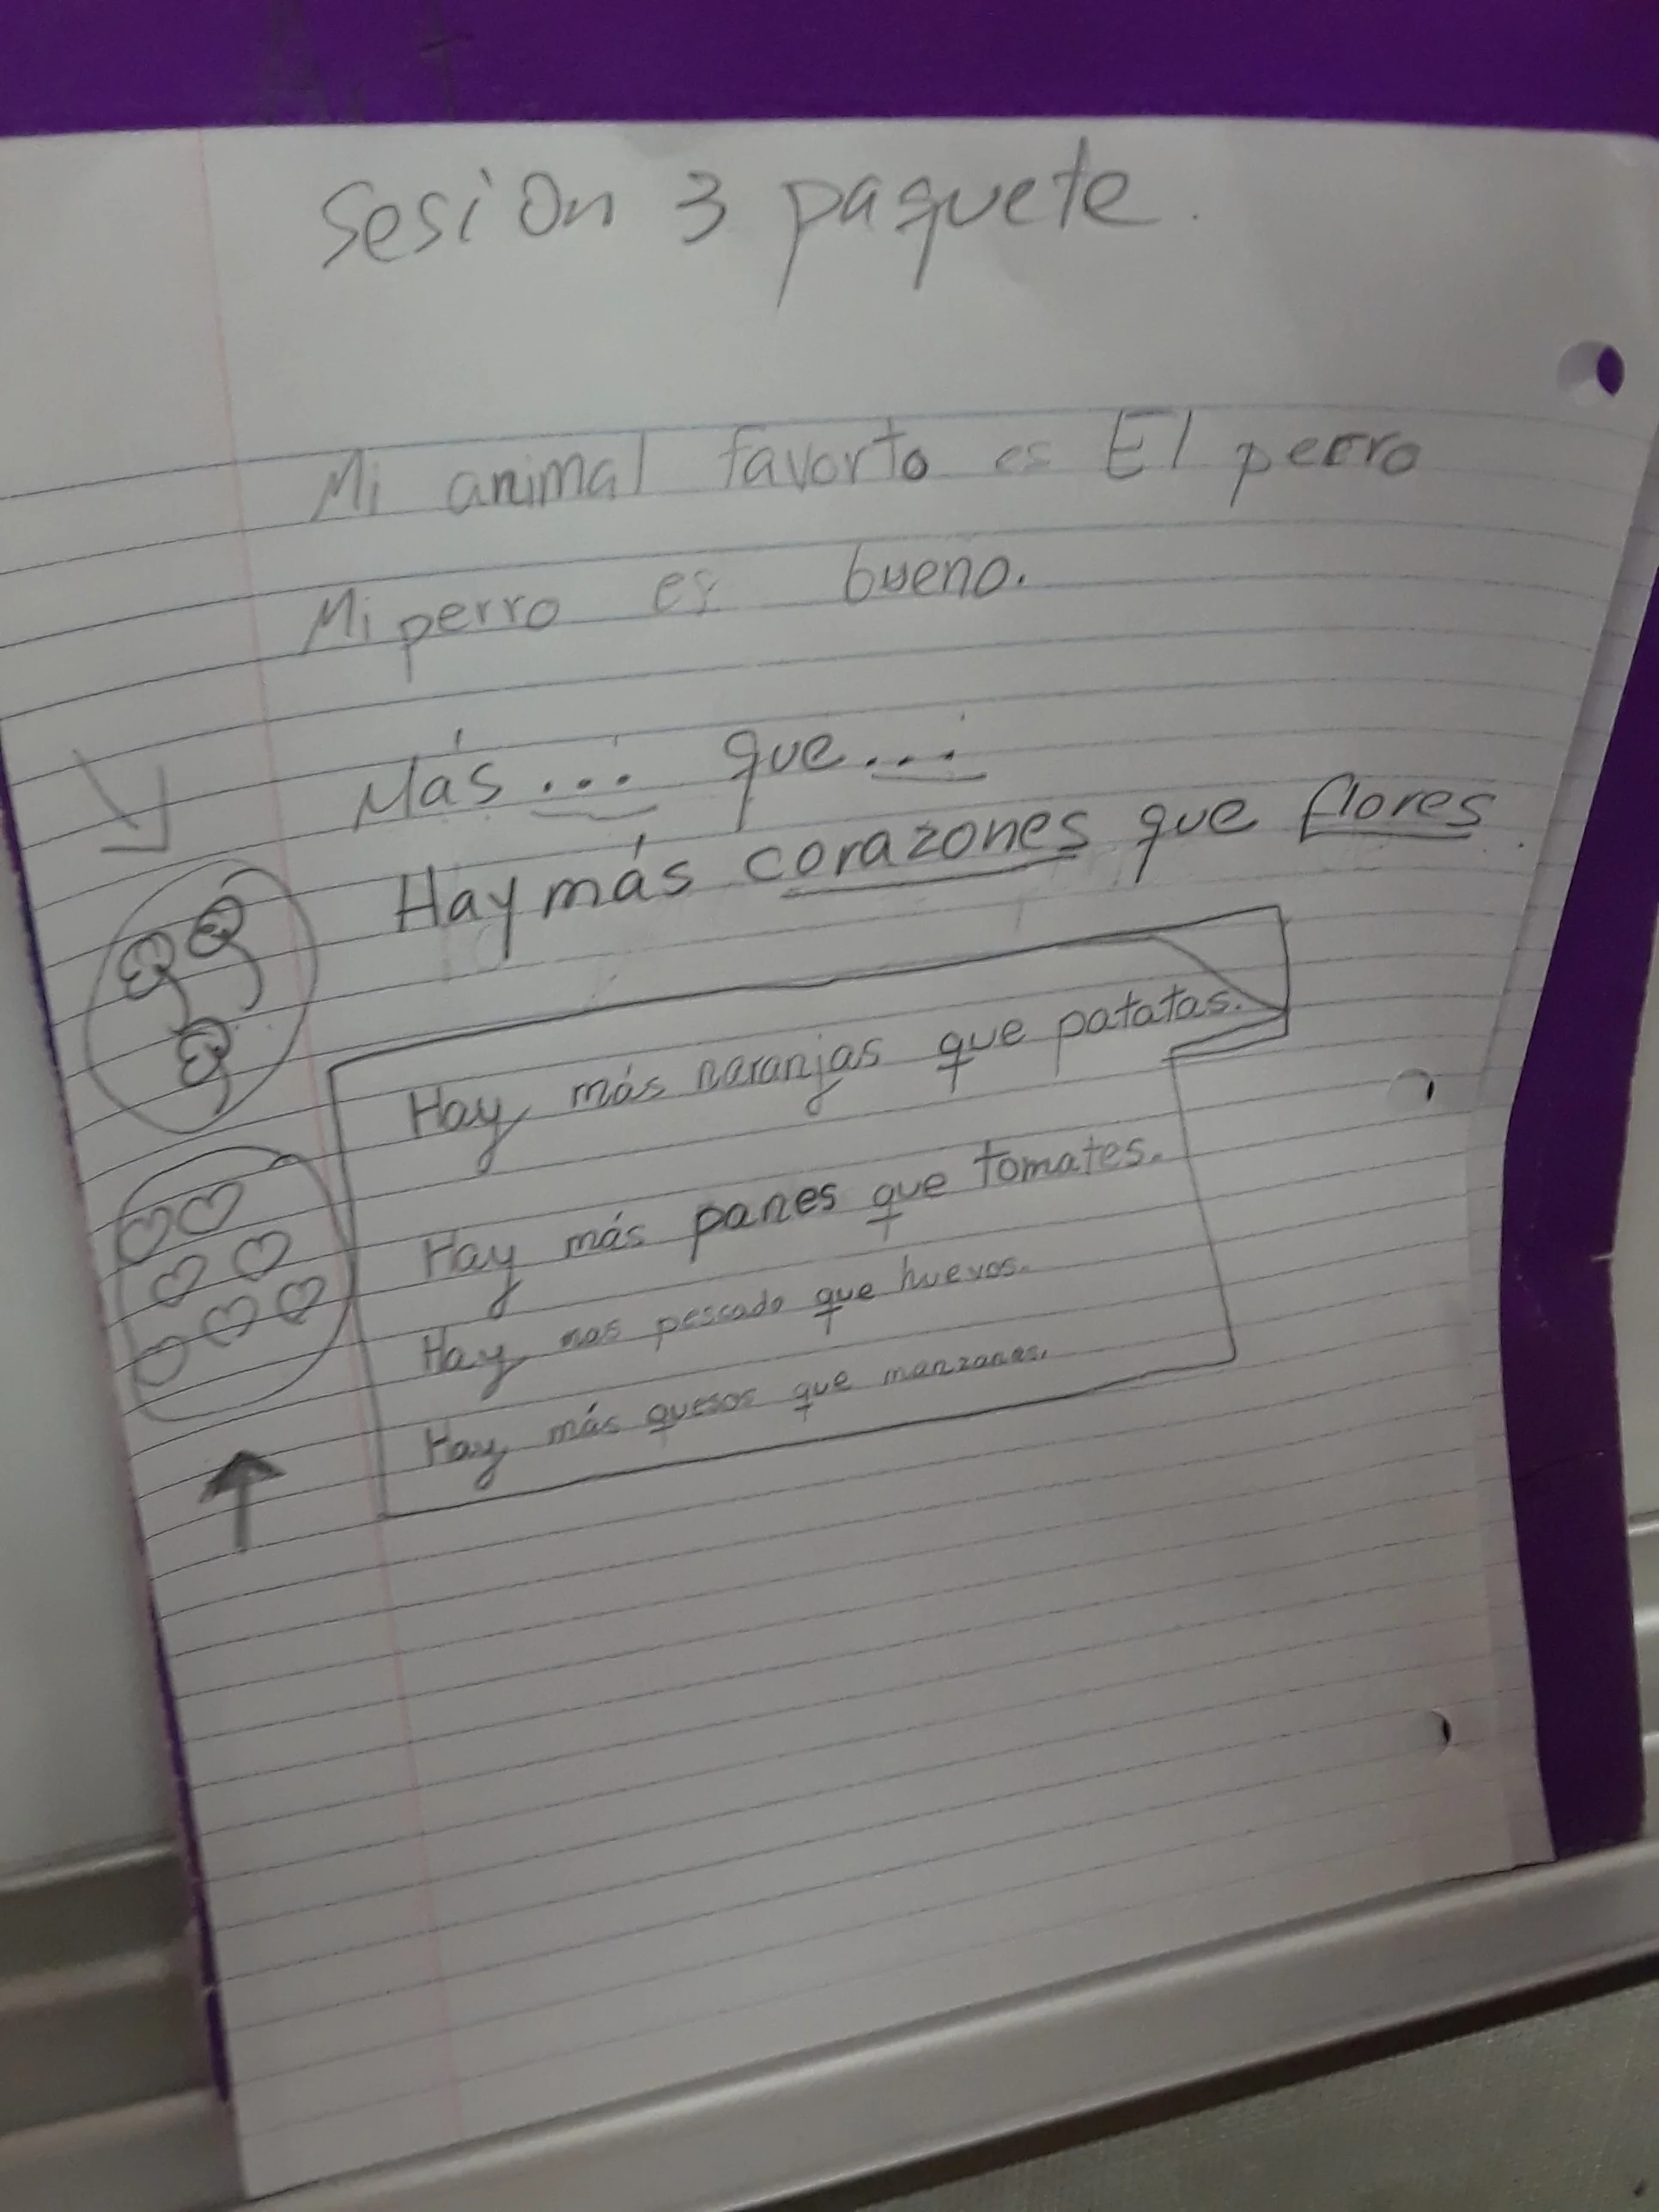 Sesion 3 paquete.
Mi animal favorto es El perro
Mi perro es bueno.
Más ... que ...
Hay más corazones que flores.
Hay más naranjas que patatas.
Hay más panes que tomates.
Hay mas pescado que huevos.
Hay más quesos que manzanas.